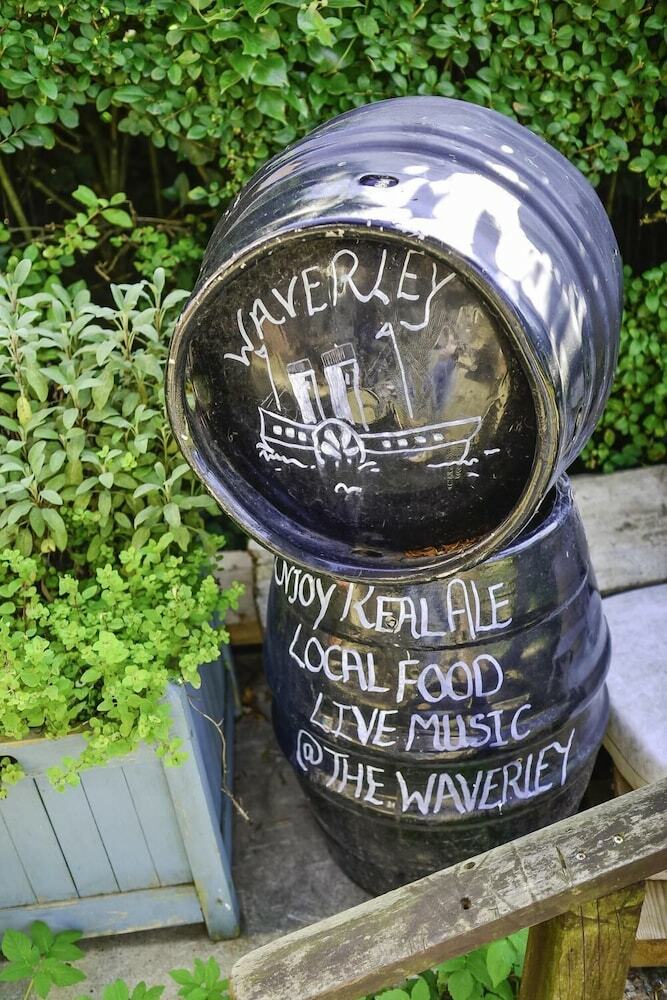 WAVERLEY
ENJOY REAL ALE
LOCAL FOOD
LIVE MUSIC
@ THE WAVERLEY